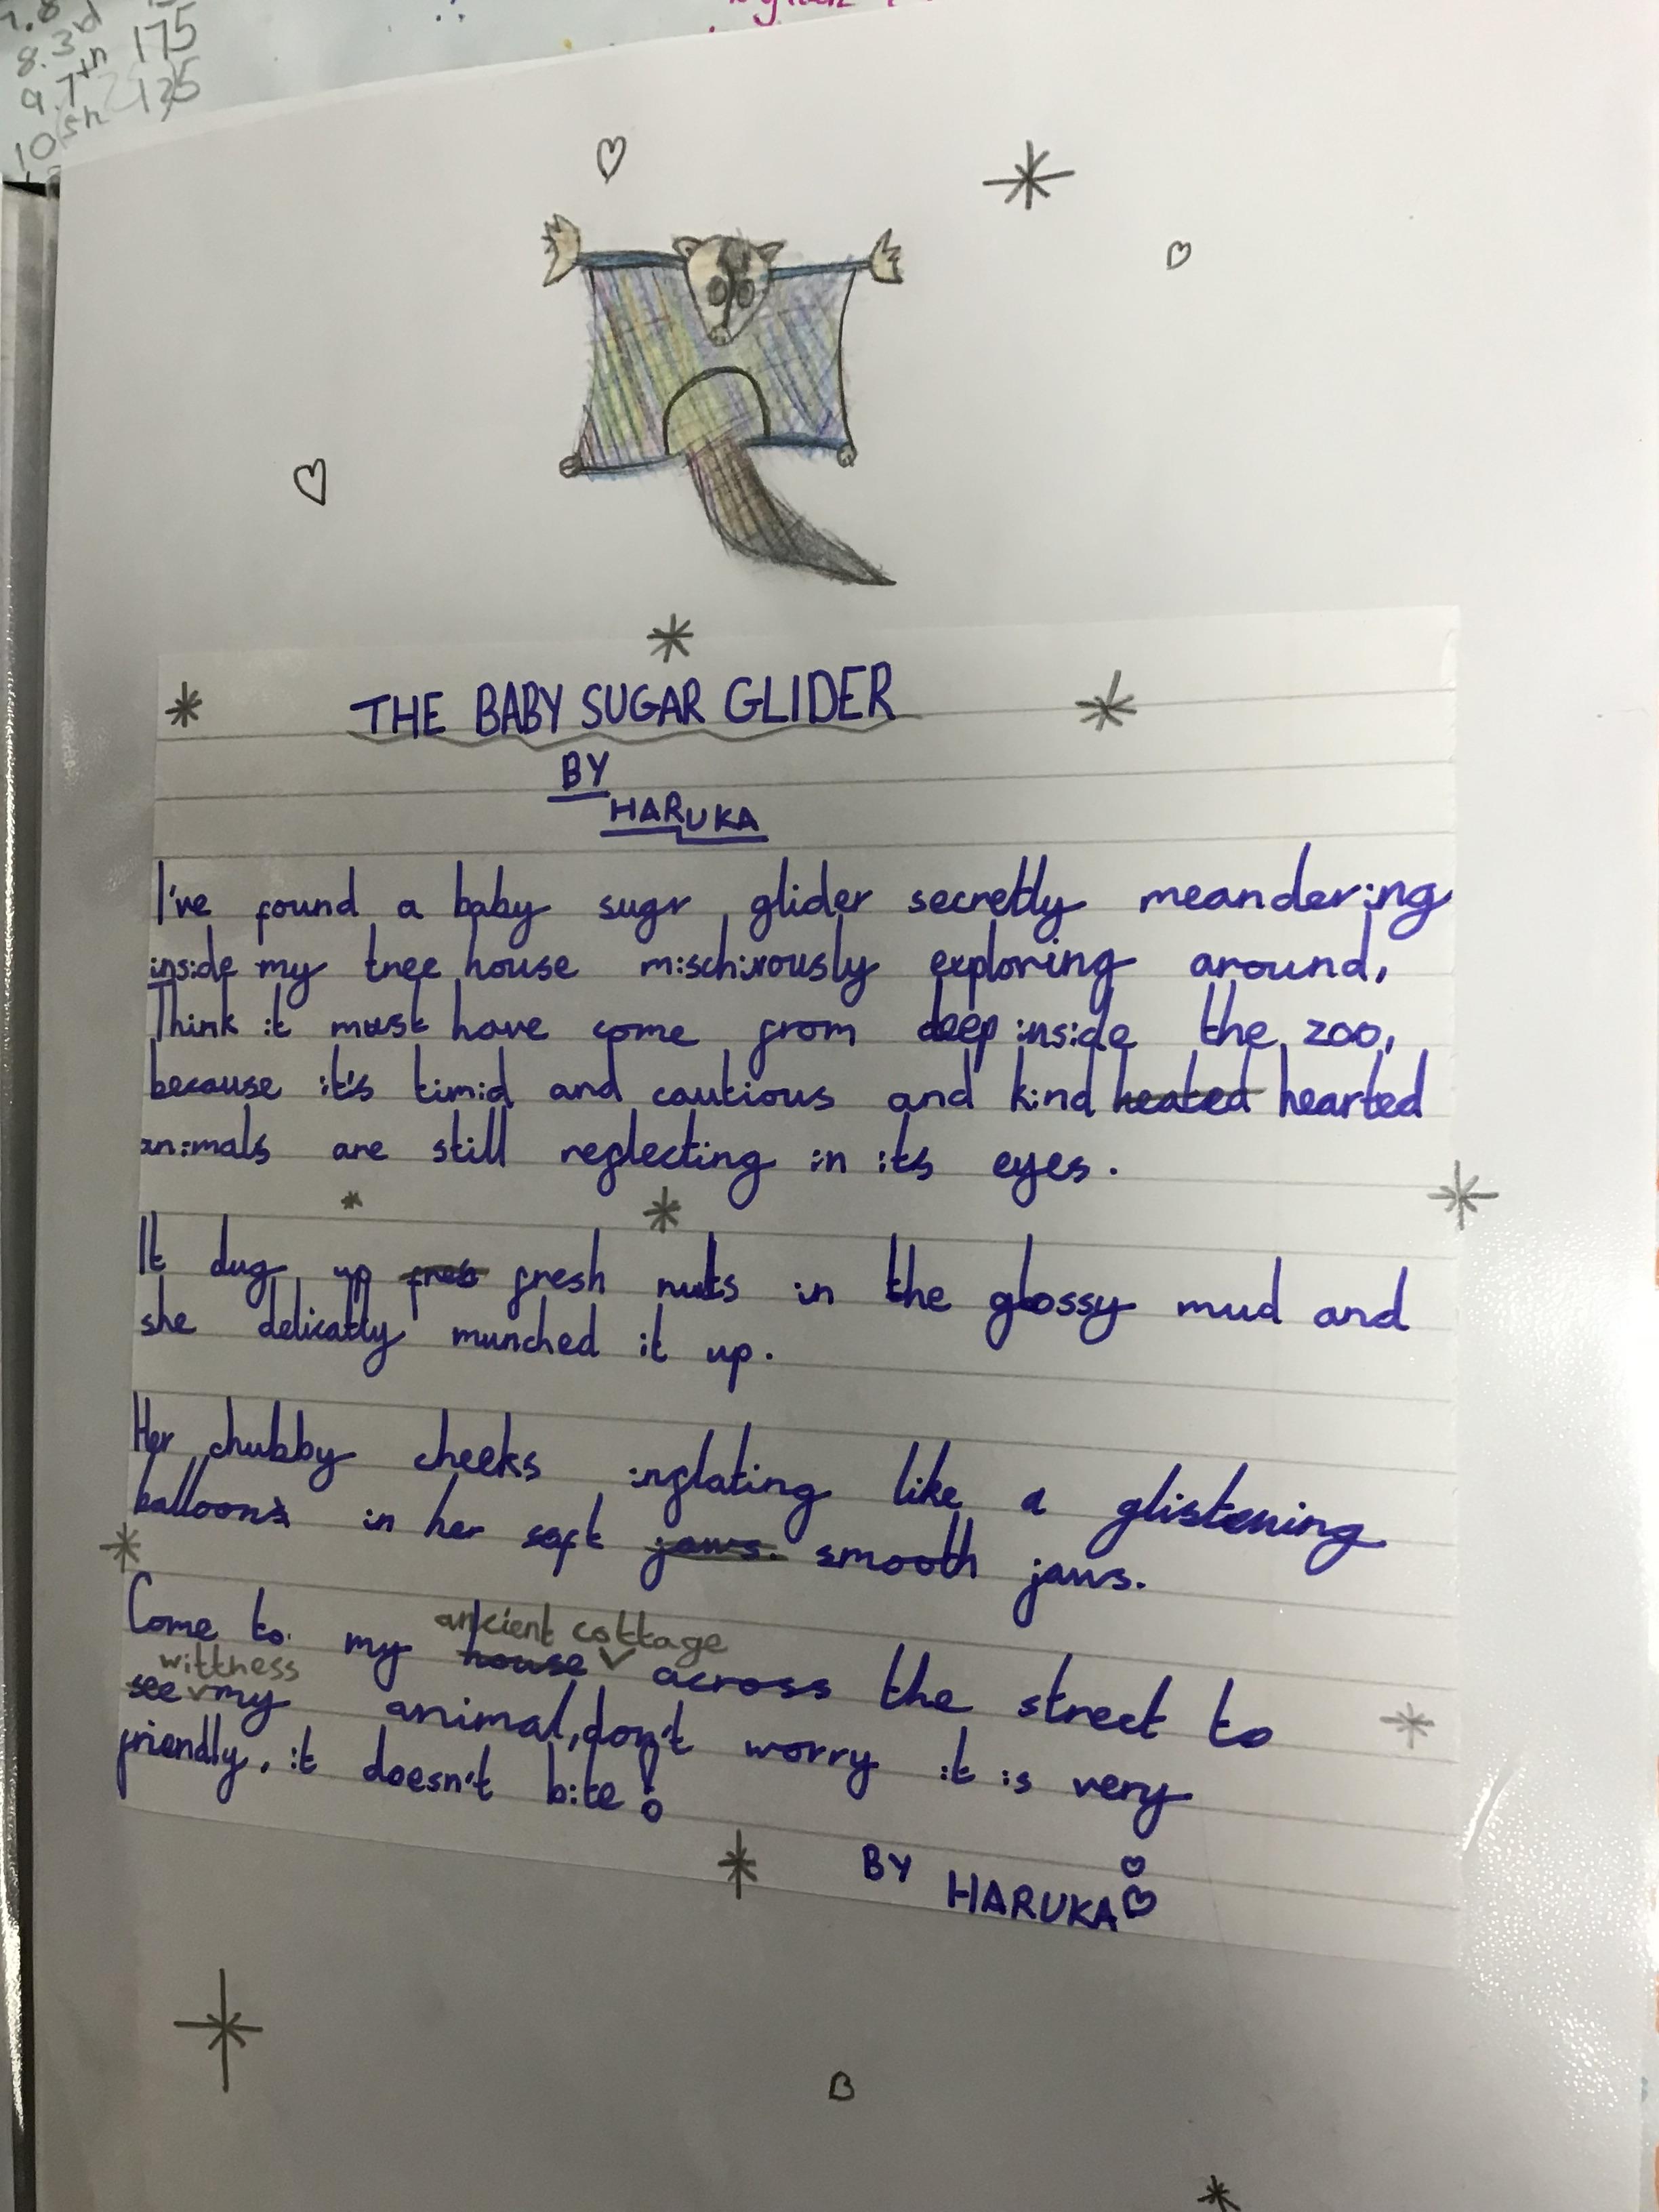 8.3rd 175
9.7th 135
10
THE BABY SUGAR GLIDER
BY
HARUKA
I've found a baby sugr glider secretly meandering
inside my tree house mischivously exploring around,
Think it must have come from deep inside the zoo,
because it's timid and cautious and kind heated hearted
animals are still reflecting in its eyes.
It dug up fresh nuts in the glossy mud and
she delicatly munched it up.
Her chubby cheeks inflating like a glistening
balloons in her soft jaws. smooth jaws.
ancient cottage
Come to my house across the street to
wittness
see my animal, don't worry it is very
friendly, it doesn't bite!
BY HARUKA